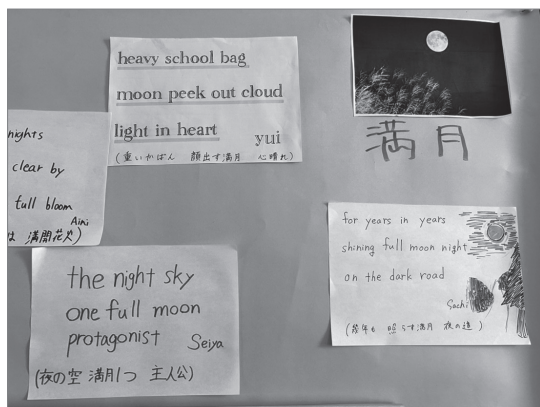 heavy school bag
moon peek out cloud
light in heart
yui
(重いかばん 顔出す満月 心晴れ)
満月
nights
clear by
full bloom
Aini
は 満開花火)
the night sky
one full moon
protagonist
Seiya
(夜の空 満月1つ 主人公)
for years in years
shining full moon night
on the dark road
Sachi
(幾年も 照らす満月 夜の道)